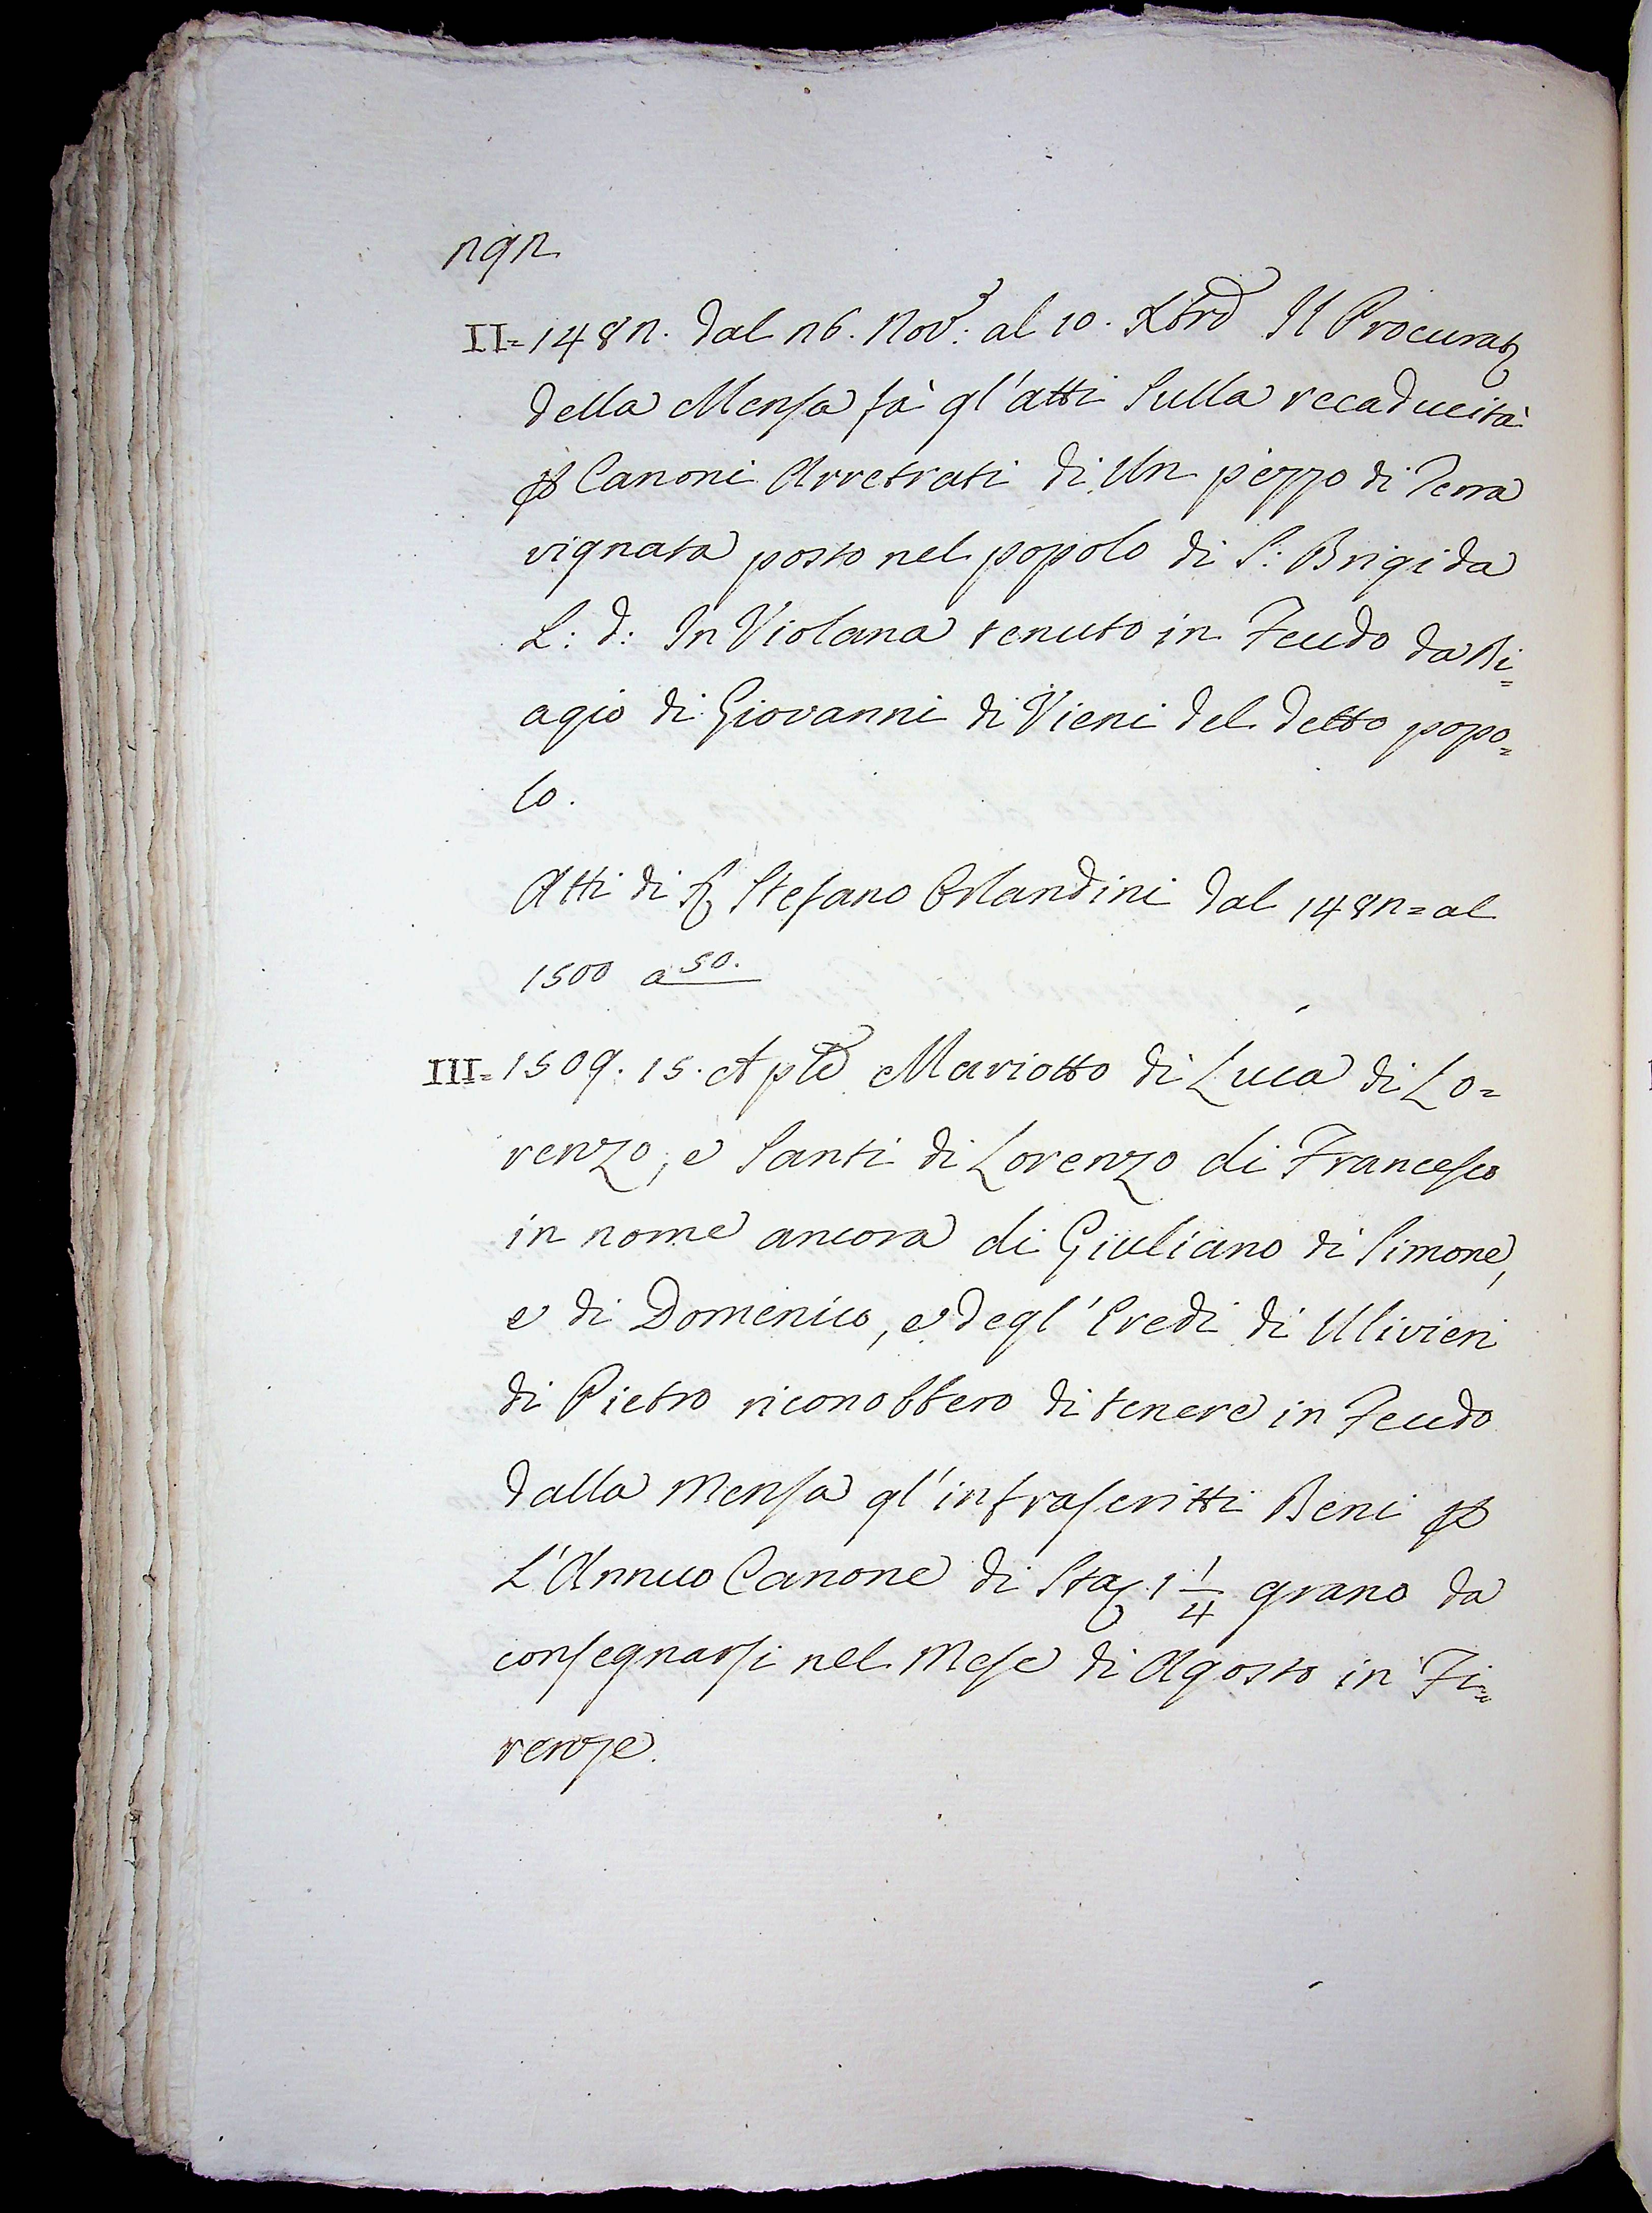 292
II= 1482. Dal 26. Nov.e al 10. Xbre Il Procurat.
della Mensa fà gl'atti Sulla recaducità
p Canoni Arretrati di Un pezzo di Terra
vignata posto nel popolo di S: Brigida
L: d: In Violana tenuto in Feudo da Bi=
agio di Giovanni di Vieni del detto popo=
lo.
Atti di S. Stefano Orlandini dal 1482= al
1500 a 50.
III= 1509. 15. Aple Mariotto di Luca di Lo=
renzo, e Santi di Lorenzo di Francesco
in nome ancora di Giuliano di Simone,
e di Domenico, e degl'Eredi di Ulivieri
di Pietro riconobbero di tenere in Feudo
dalla Mensa gl'infrascritti Beni p
L'Annuo Canone di Sta. 1 1/4 grano da
consegnarsi nel Mese di Agosto in Fi=
renze.